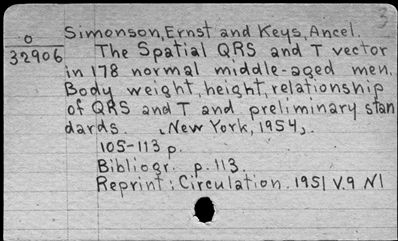 3
Simonson, Ernst and Keys, Ancel.
O
32906
The Spatial QRS and T vector
in 178 normal middle-aged men.
Body weight, height, relationship
of QRS and T and preliminary stan
dards. [New York, 1954].
105-113 p.
Bibliogr. p. 113.
Reprint: Circulation. 1951 V.9 N1